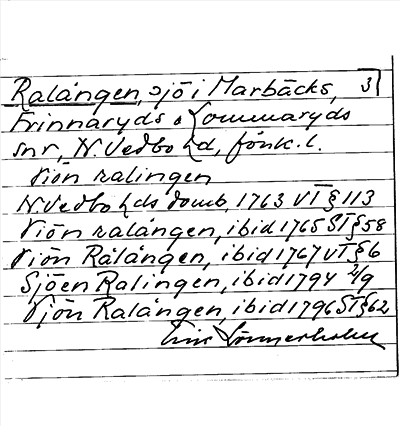 Ralången, sjö i Marbäcks, 3
Frinnaryds o Lommaryds
snr, N. Vedbo hd, Jönk. l.
Siön ralingen
N. Vedbo hds domb, 1763 VT § 113
Siön ralången, ibid 1765 ST § 58
Siön Rålången, ibid 1767 VT § 6
Sjöen Ralingen, ibid 1794 2/9
Sjön Ralången, ibid 1796 ST § 62
Eric Lönnerholm